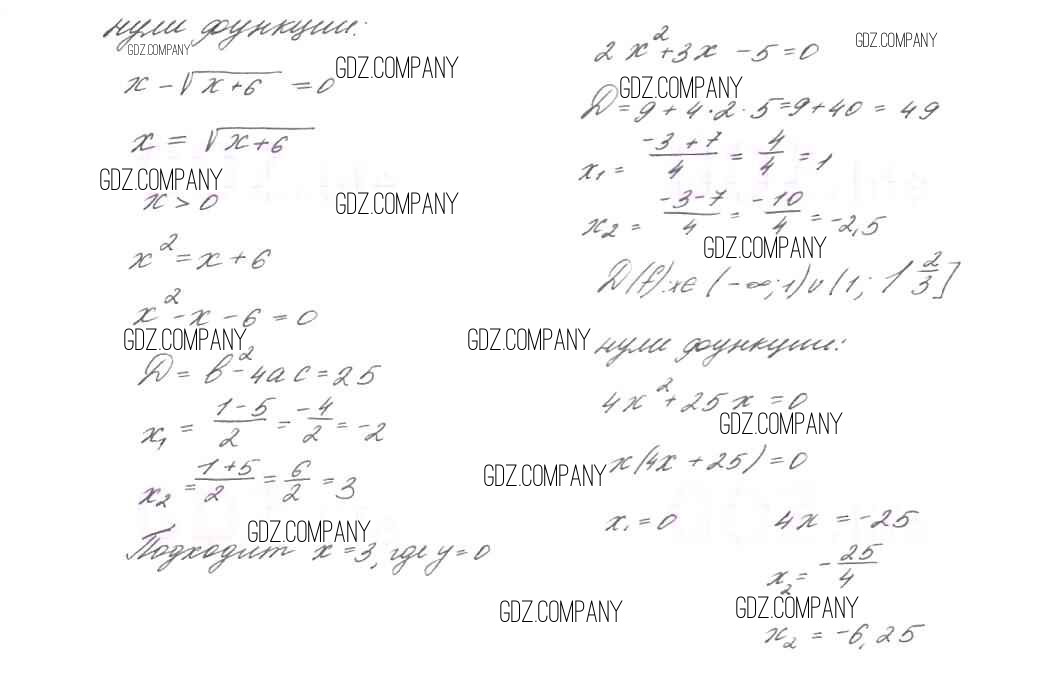 нули функции:
GDZ.COMPANY
x - √x+6 = 0 GDZ.COMPANY
x = √x+6
GDZ.COMPANY
x > 0 GDZ.COMPANY
x² = x + 6
x² - x - 6 = 0
GDZ.COMPANY
D = b² - 4ac = 25
x₁ = 1-5/2 = -4/2 = -2
x₂ = 1+5/2 = 6/2 = 3
GDZ.COMPANY
Подходит x = 3, где y = 0
2x² + 3x - 5 = 0 GDZ.COMPANY
GDZ.COMPANY
D = 9 + 4·2·5 = 9 + 40 = 49
x₁ = -3+7/4 = 4/4 = 1
x₂ = -3-7/4 = -10/4 = -2,5
GDZ.COMPANY
D(f): x∈(-∞; 1)∪(1; 1 2/3]
GDZ.COMPANY нули функции:
4x² + 25x = 0
GDZ.COMPANY
GDZ.COMPANY x(4x + 25) = 0
x₁ = 0 4x = -25
x₂ = -25/4
GDZ.COMPANY GDZ.COMPANY
x₂ = -6,25